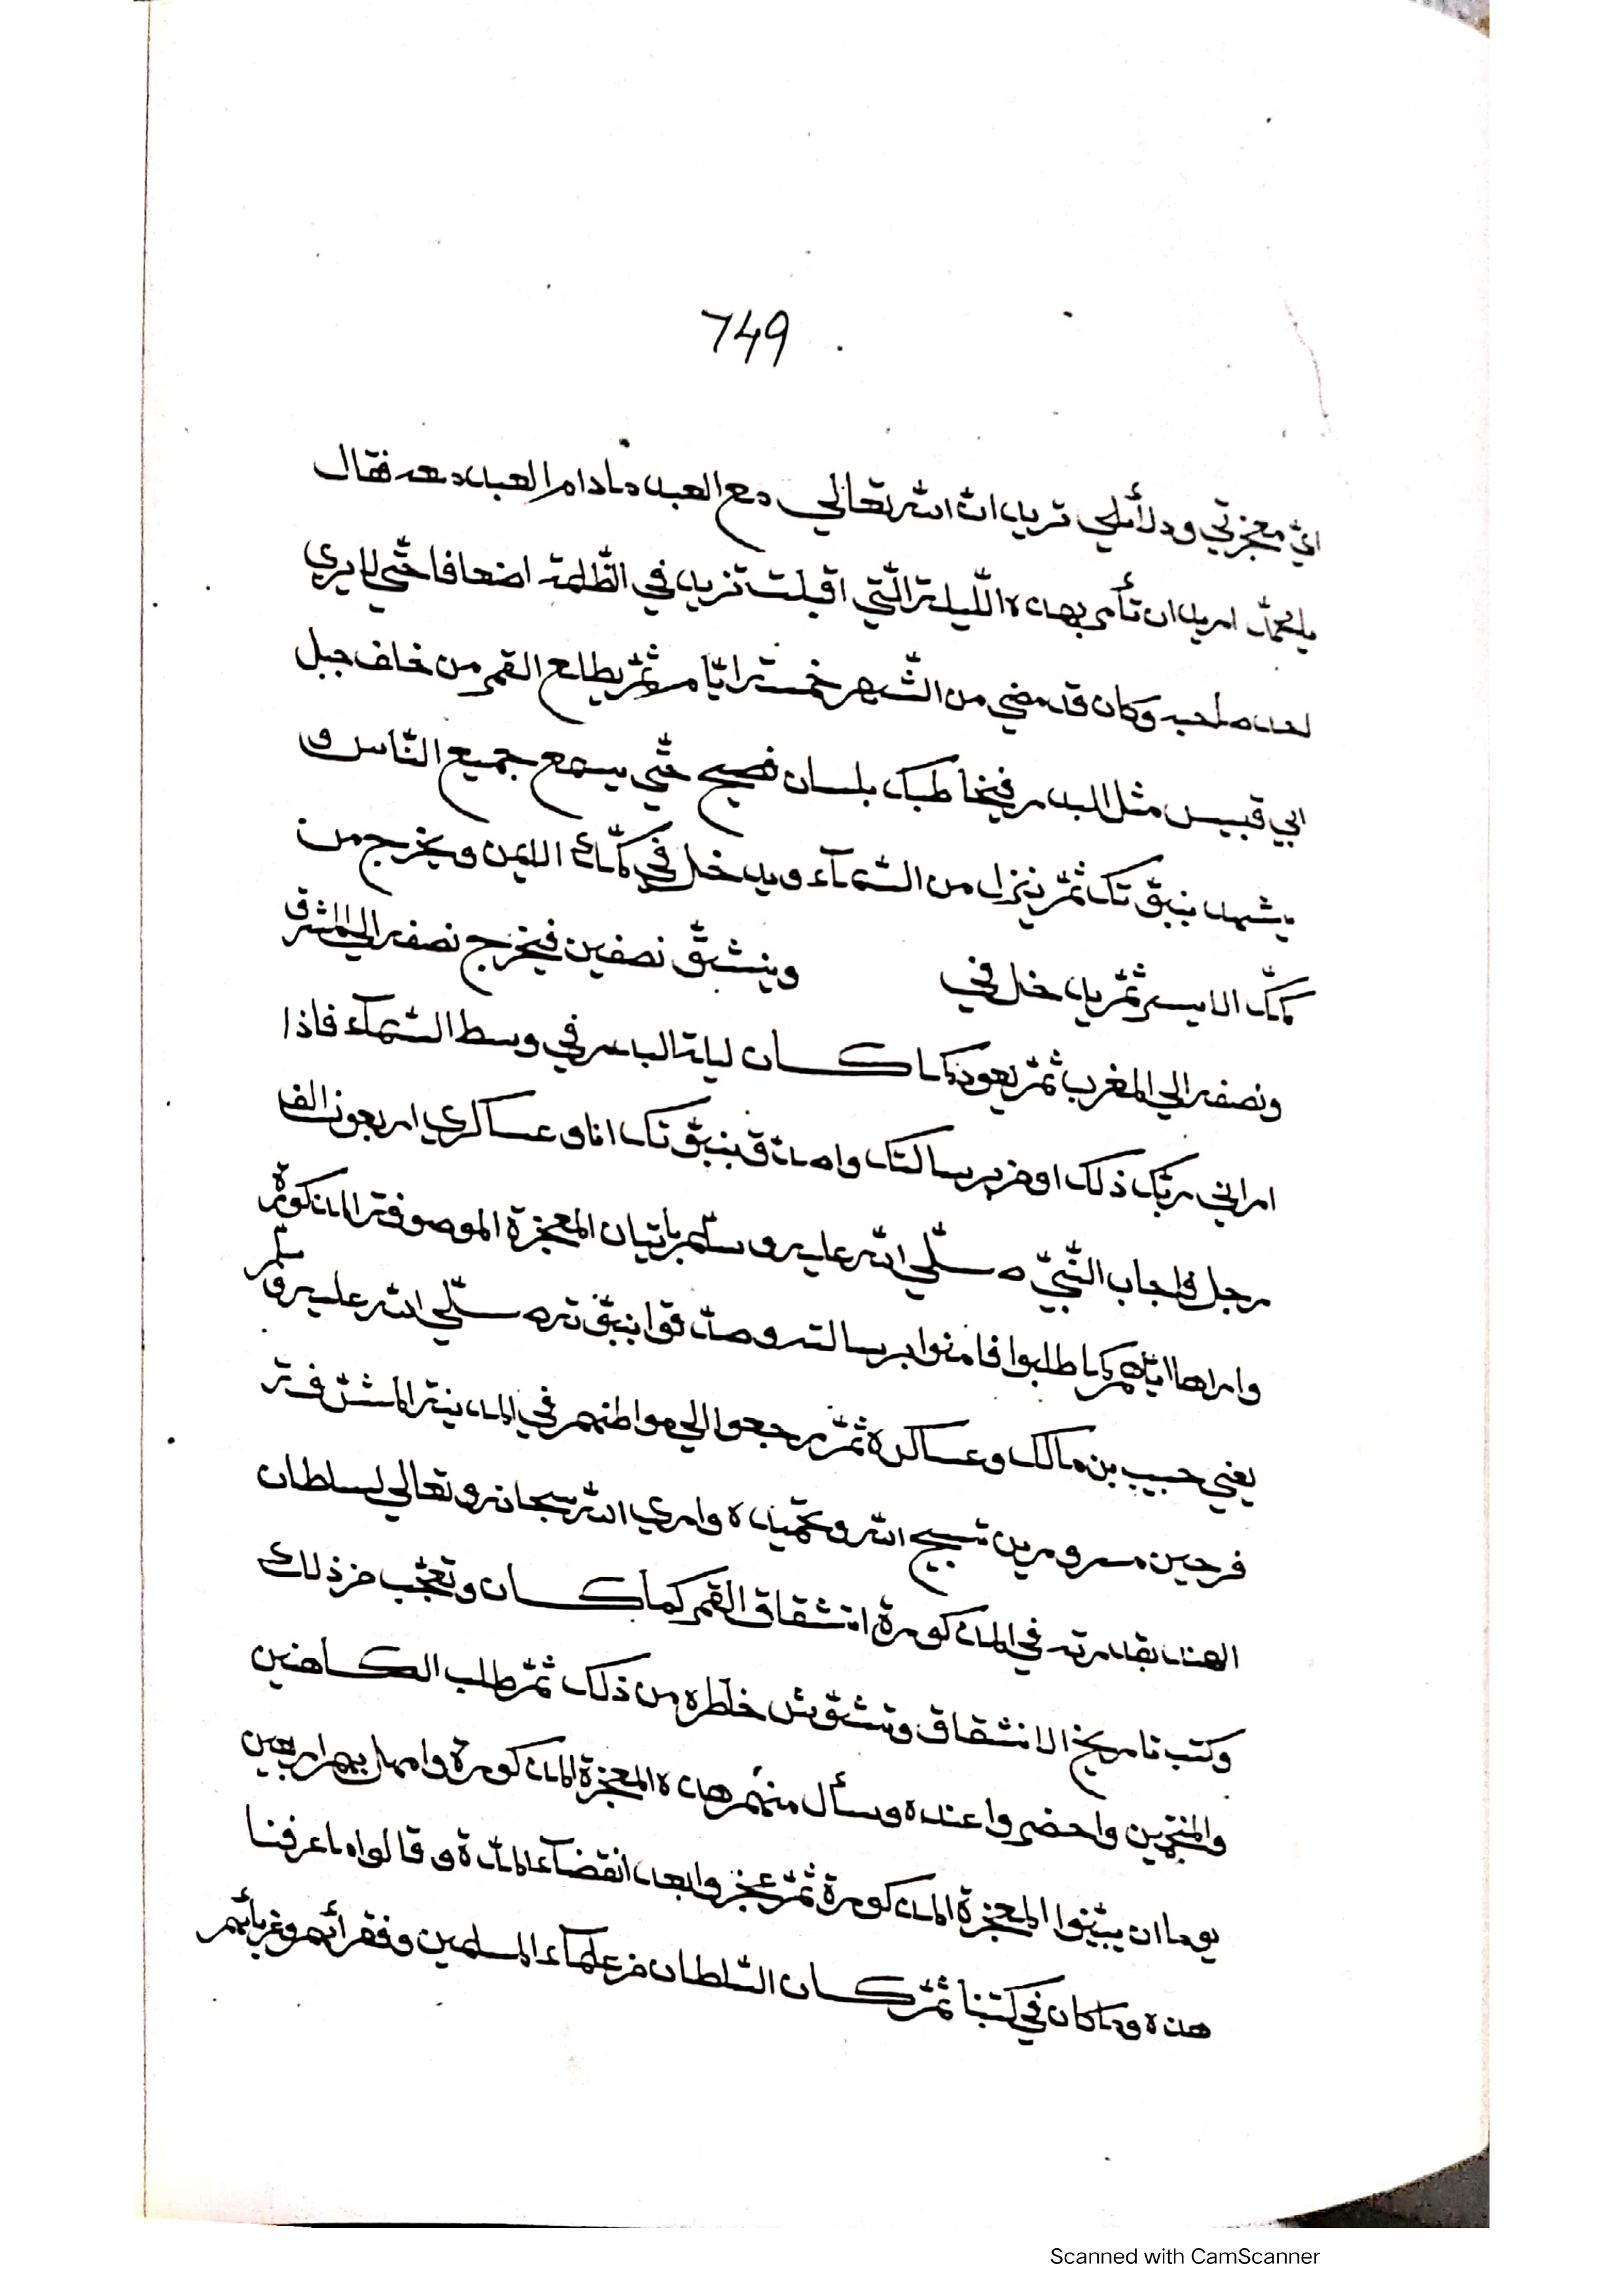 749
ايّ معجزتي ودلائلي تريد ان الله تعالي مع العبد مادام العبد معه فقال
يا محمّد اريد ان تأمر بهذه الليلة الّتي اقبلت تزيد في الظّلمة اضعافا حتّي لا يري
احد صاحبه وكان قد مضي من الشّهر خمسة ايّام ثمّ يطلع القمر من خلف جبل
ابي قبيس مثل البدر فيخاطبك بلسان فصيح حتّي يسمع جميع النّاس و
يشهد بنبوّتك ثمّ ينزل من السّمآء ويدخل في كمّك الايمن ويخرج من
كمّك الايسر ثمّ يدخل في وينشقّ نصفين فيخرج نصفه الي المشرق
ونصفه الي المغرب ثمّ يعود كما كان ليلة البدر في وسط السّمآء فاذا
اراني ربّك ذلك اومن برسالتك واصدّق بنبوّتك انا و عساكري اربعون الف
رجل فاجاب النّبيّ صلّي الله عليه وسلّم باتيان المعجزة الموصوفة المذكورة
واراها ايّاهم كما طلبوا فامنوا برسالته وصدّقوا بنبوّته صلّي الله عليه وسلّم
يعني حبيب بن مالك وعساكره ثمّ رجعوا الي مواطنهم في المدينة المشرّفة
فرحين مسرورين تسبيح الله وتحميده واري الله سبحانه وتعالي لسلطان
الهند بقدرته في المذكورة انشقاق القمر كما كان وتعجّب من ذلك
وكتب تاريخ الانشقاق وتشوّش خاطره من ذلك ثمّ طلب الكاهنين
والمنجّمين واحضروا عنده وسأل منهم هذه المعجزة المذكورة وامهل بهم اربعين
يوما ان يبيّنوا المعجزة المذكورة ثمّ عجزوا بعد انقضآء المدّة و قالوا ما عرفنا
هذه وما كان في كتبنا ثمّ كان السّلطان من علمآء المسلمين وفقرائهم وغربائهم
Scanned with CamScanner